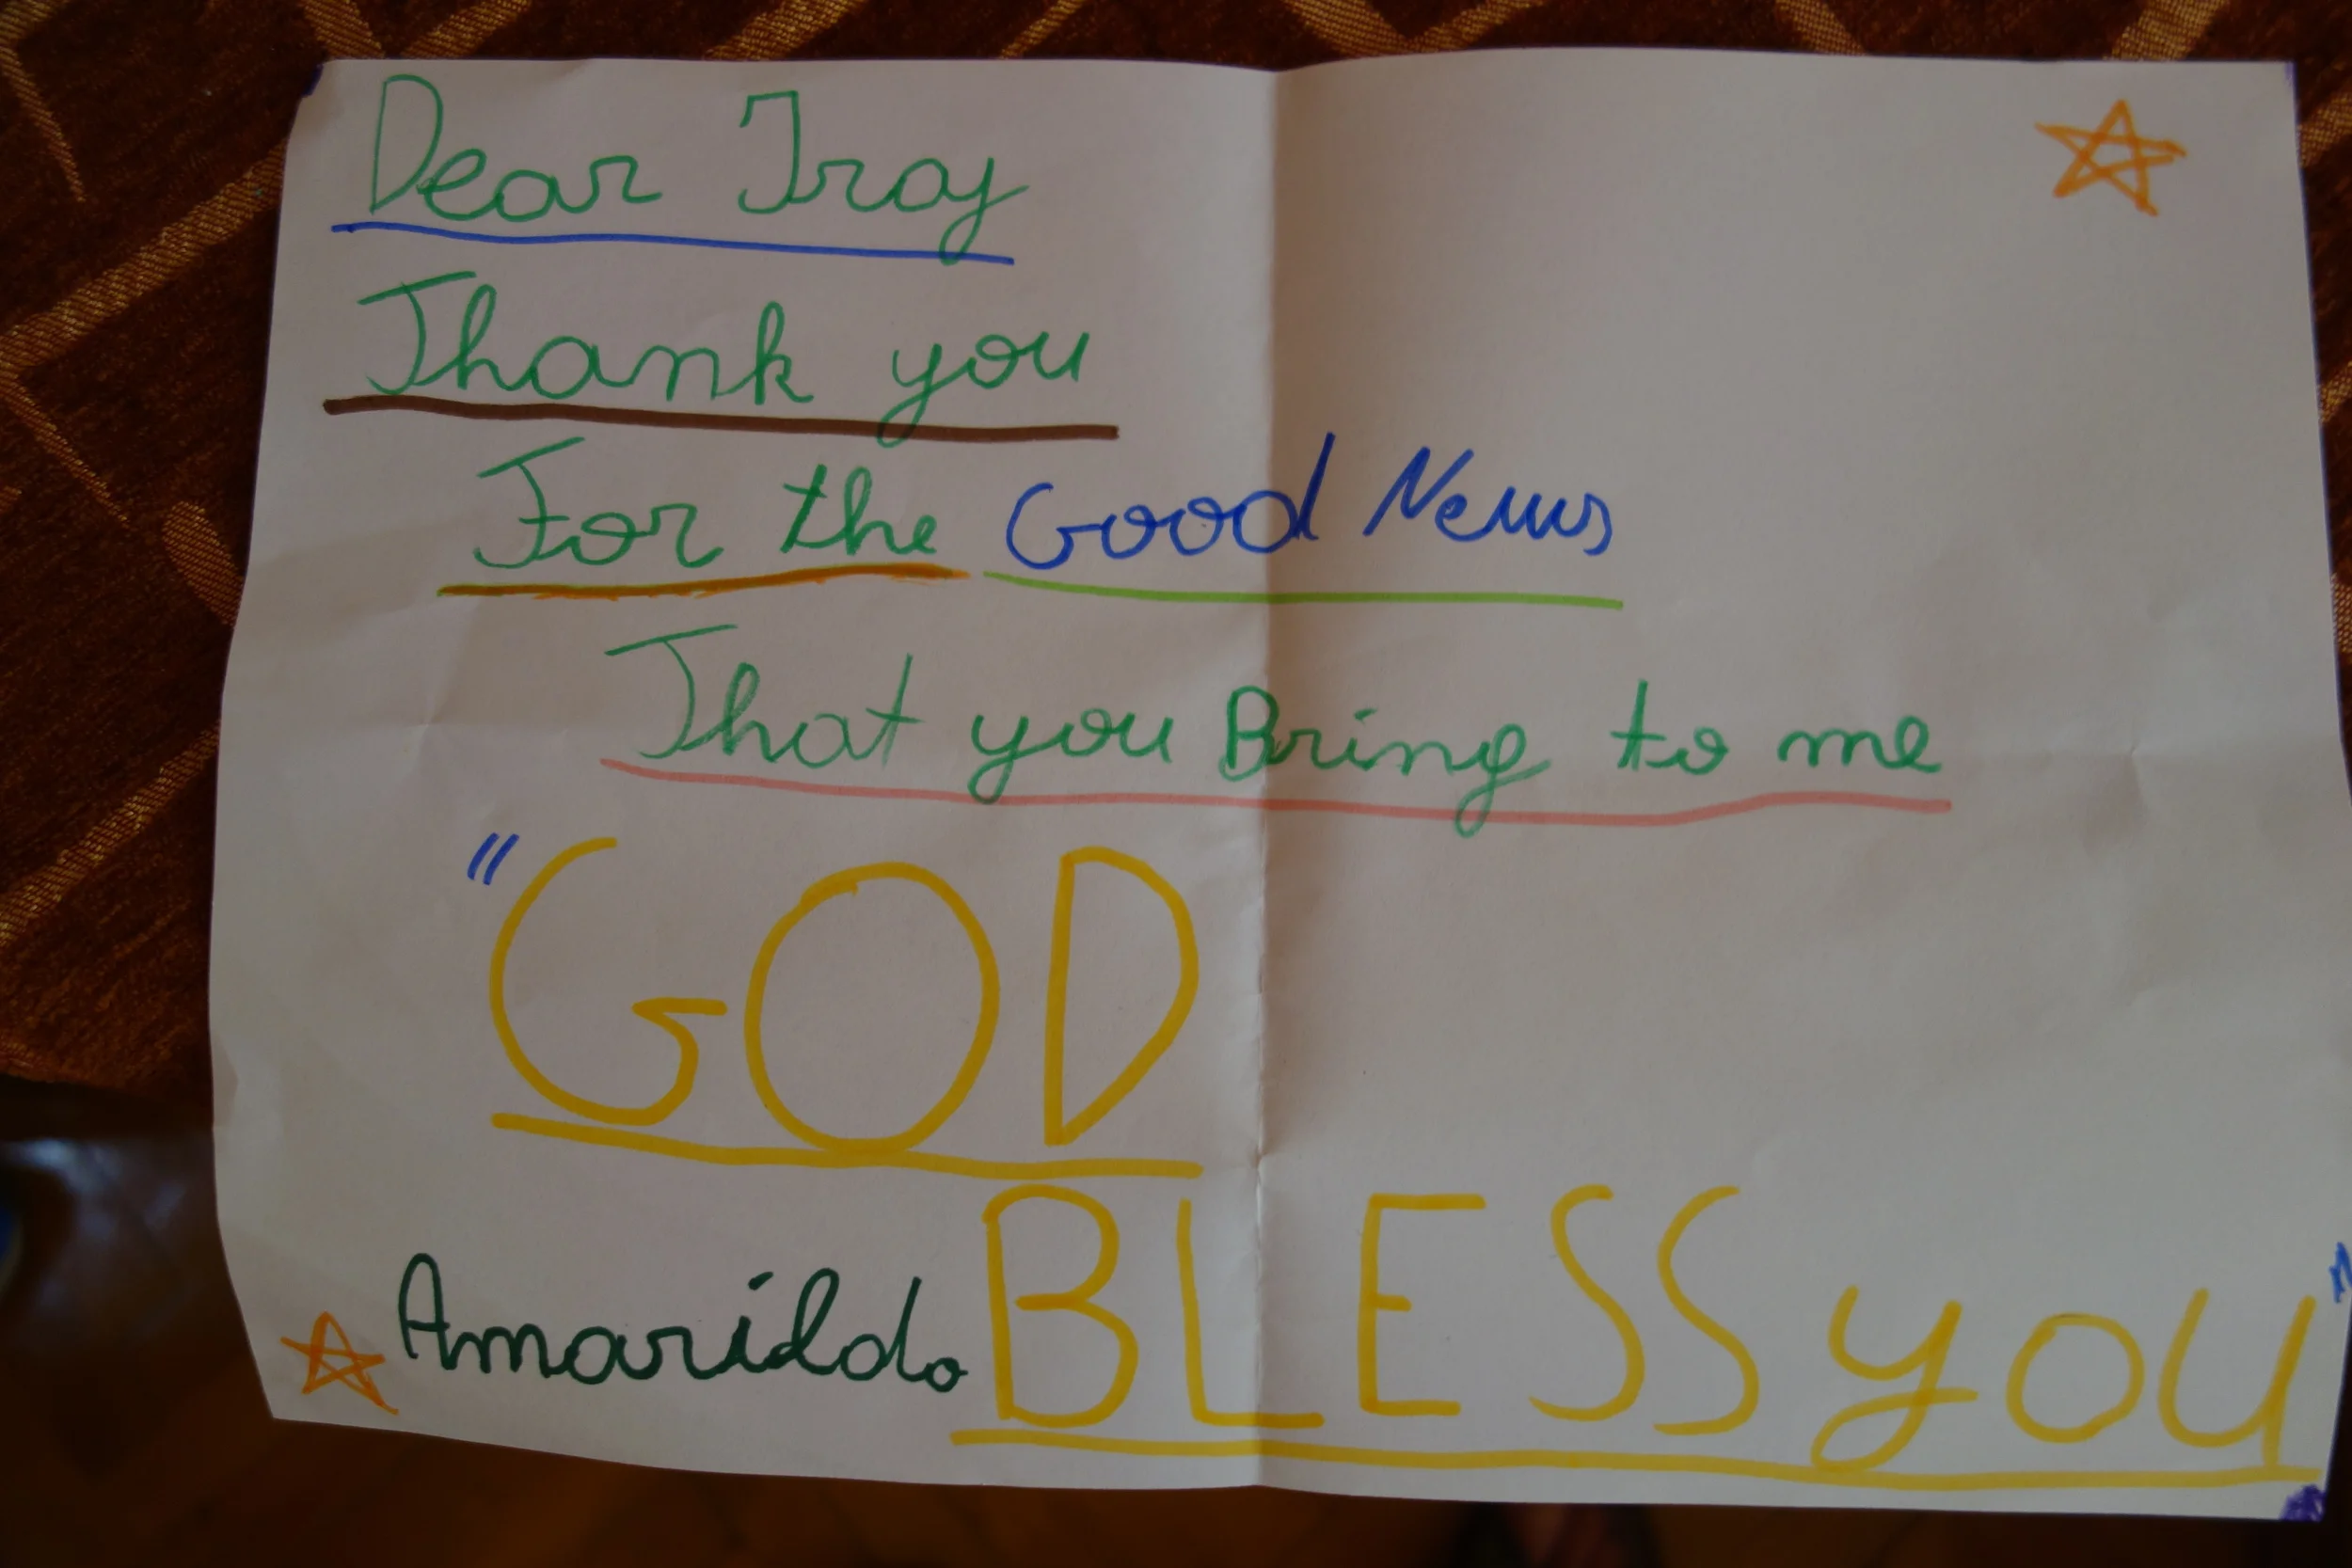 Dear Troy
Thank you
For the Good News
That you Bring to me
"GOD
BLESS you"
Amarildo